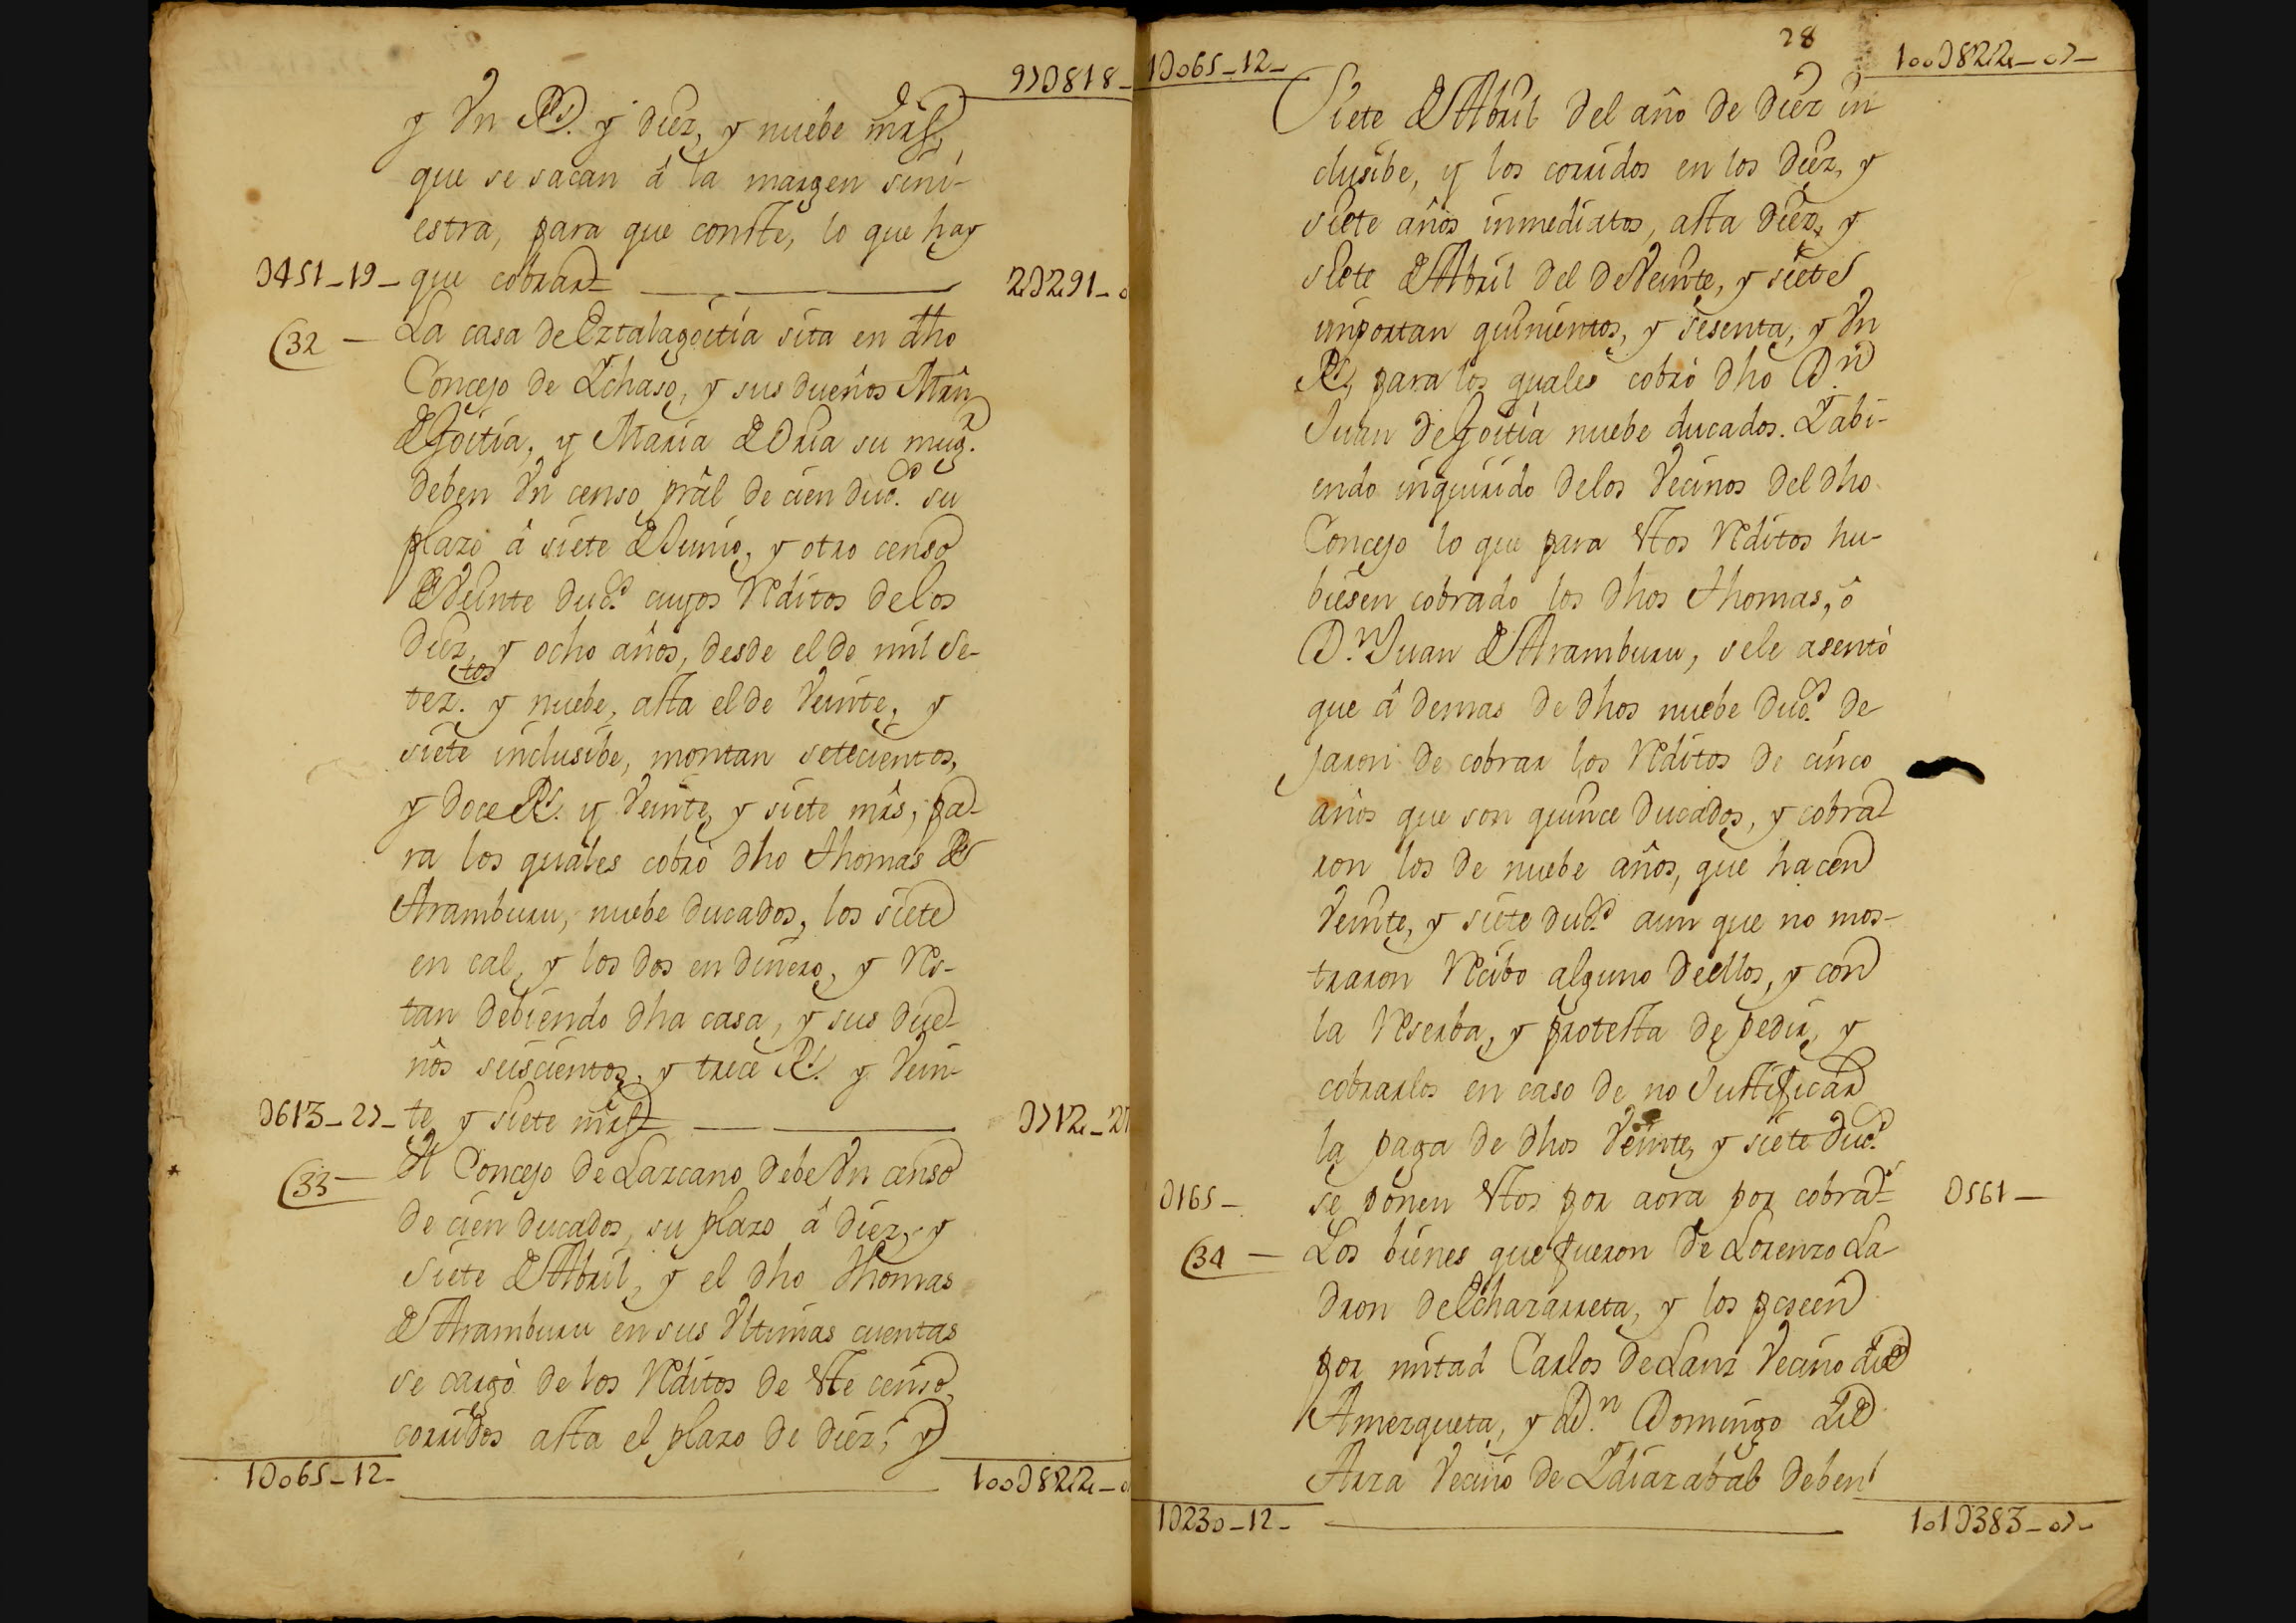 97D818-
y Vn Rl. y diez, y nuebe mrs,
que se sacan â la margen sini-
estra, para que conste, lo que hay
D451-19- que cobrar 2D291-0
(32 - La casa de Eztalagoitia sita en dho
Concejo de Ychaso, y sus dueños Mrñ
de Goitia, y Maria de Oria su mugr.
deben Vn censo prâl de cien ducs. su
plazo â siete de Junio, y otro censo
de Veinte ducs. cuyos Reditos de los
diez, y ocho años, desde el de mil Se-
teztos. y nuebe, asta el de Veinte, y
siete inclusibe, montan setecientos,
y doce Rs. y Veinte, y siete mrs, pa-
ra los quales cobrò dho thomas de
Aramburu, nuebe ducados, los siete
en cal, y los dos en dinero, y Res-
tan debiendo dha casa, y sus due-
ños seiscientos, y trece Rs. y Vein-
D613-27- te, y siete mrs D712-27
(33 - El Concejo de Lazcano debe Vn censo
de cien ducados, su plazo â diez, y
siete de Abril, y el dho thomas
de Aramburu en sus Vltimas cuentas
se cargò de los Reditos de este censo,
corridos asta el plazo de diez, y
1D065-12- 100D822-0
28
1D065-12- 100D822-07-
Siete de Abril del año de diez in
clusibe, y los corridos en los diez, y
siete años inmediatos, asta diez, y
siete de Abril del de Veinte, y siete
importan quinientos, y sesenta, y Vn
Rs, para los quales cobrò dho Dn.
Juan de Goitia nuebe ducados. Yabi-
endo inquirido de los Vecinos del dho
Concejo lo que para estos Reditos hu-
biesen cobrado los dhos thomas, ô
Dn. Juan de Aramburu, se le asentò
que â demas de dhos nuebe ducs. de
jaron de cobrar los Reditos de cinco
años que son quince ducados, y cobra-
ron los de nuebe años, que hacen
Veinte, y siete ducs. aun que no mos-
traron Recibo alguno de ellos, y con
la Reserba, y protesta de pedir, y
cobrarlos en caso de no Justificar
la paga de dhos Veinte, y siete ducs.
D165- se ponen estos por aora por cobrar D561-
(34 - Los bienes que fueron de Lorenzo La-
dron de Echazarreta, y los poseen
por mitad Carlos de Lanz Vecino de
Amezqueta, y Dn. Domingo de
Arza Vecino de Ydiazabal deben
1D230-12- 101D383-07-